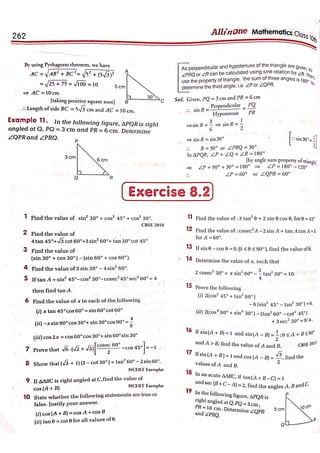 262
All in one Mathematics Class 10th
By using Pythagoras theorem, we have
AC = √AB² + BC² = √5² + (5√3)²
= √25 + 75 = √100 = 10
⇒ AC = 10 cm
[taking positive square root]
∴ Length of side BC = 5√3 cm and AC = 10 cm.
5 cm
30°
B
C
Example 11. In the following figure, ΔPQR is right
angled at Q, PQ = 3 cm and PR = 6 cm. Determine
∠QPR and ∠PRQ.
P
3 cm
6 cm
Q
R
As perpendicular and hypotenuse of the triangle are given, so
∠PRQ or ∠R can be calculated using sine relation for ∠R. Then,
use the property of triangle, 'the sum of three angles is 180°' to
determine the third angle, i.e. ∠P or ∠QPR.
Sol. Given, PQ = 3 cm and PR = 6 cm
∴ sin R = Perpendicular / Hypotenuse = PQ / PR
⇒ sin R = 3/6 ⇒ sin R = 1/2
⇒ sin R = sin 30° [∵ sin 30° = 1/2]
∴ R = 30° or ∠PRQ = 30°
In ΔPQR, ∠P + ∠Q + ∠R = 180°
[by angle sum property of triangle]
⇒ ∠P + 90° + 30° = 180° ⇒ ∠P = 180° − 120°
∴ ∠P = 60° or ∠QPR = 60°
Exercise 8.2
1 Find the value of sin² 30° + cos² 45° + cos² 30°.
CBSE 2018
2 Find the value of
4 tan 45° + √3 cot 60° + 3 sin² 60° + tan 30° cot 45°
3 Find the value of
(sin 30° + cos 30°) − (sin 60° + cos 60°).
4 Find the value of 3 sin 30° − 4 sin³ 60°.
5 If tan A + sin² 45° − cos² 30° − cosec² 45° sec² 60° = 4
then find tan A.
6 Find the value of x in each of the following
(i) x tan 45° cos 60° = sin 60° cot 60°
(ii) −x sin 90° cos 30° + sin 30° cos 90° = 4/5
(iii) cos 2x = cos 60° cos 30° + sin 60° sin 30°
7 Prove that
8 Show that (√3 + 1) (3 − cot 30°) = tan³ 60° − 2 sin 60°.
NCERT Exemplar
9 If ΔABC is right angled at C, find the value of
cos (A + B)
NCERT Exemplar
10 State whether the following statements are true or
false. Justify your answer.
(i) cos (A + B) = cos A + cos B
(ii) tan θ = cot θ for all values of θ.
11 Find the value of : 3 tan² θ + 2 sin θ cos θ; for θ = 45°
12 Find the value of : cosec² A − 2 sin A + tan A cos A + 1
for A = 60°.
13 If sin θ − cos θ = 0, (0 ≤ θ ≤ 90°), find the value of θ.
14 Determine the value of x, such that
2 cosec² 30° + x sin² 60° − 3/4 tan² 30° = 10.
15 Prove the following
(i) 2(cos² 45° + tan² 60°)
− 6 (sin² 45° − tan² 30°) = 6.
(ii) 2(cos⁴ 60° + sin⁴ 30°) − (tan² 60° − cot² 45°)
CBSE
17 If sin (A + B) = 1 and cos (A − B) = √3/2, find the
values of A and B.
18 In an acute ΔABC, if tan (A + B − C) = 1
and sec (B + C − A) = 2, find the angles A, B and C.
19 In the following figure, ΔPQR is
right angled at Q, PQ = 5 cm,
PR = 10 cm. Determine ∠QPR
and ∠PRQ.
P
5 cm
10 cm
Q
R